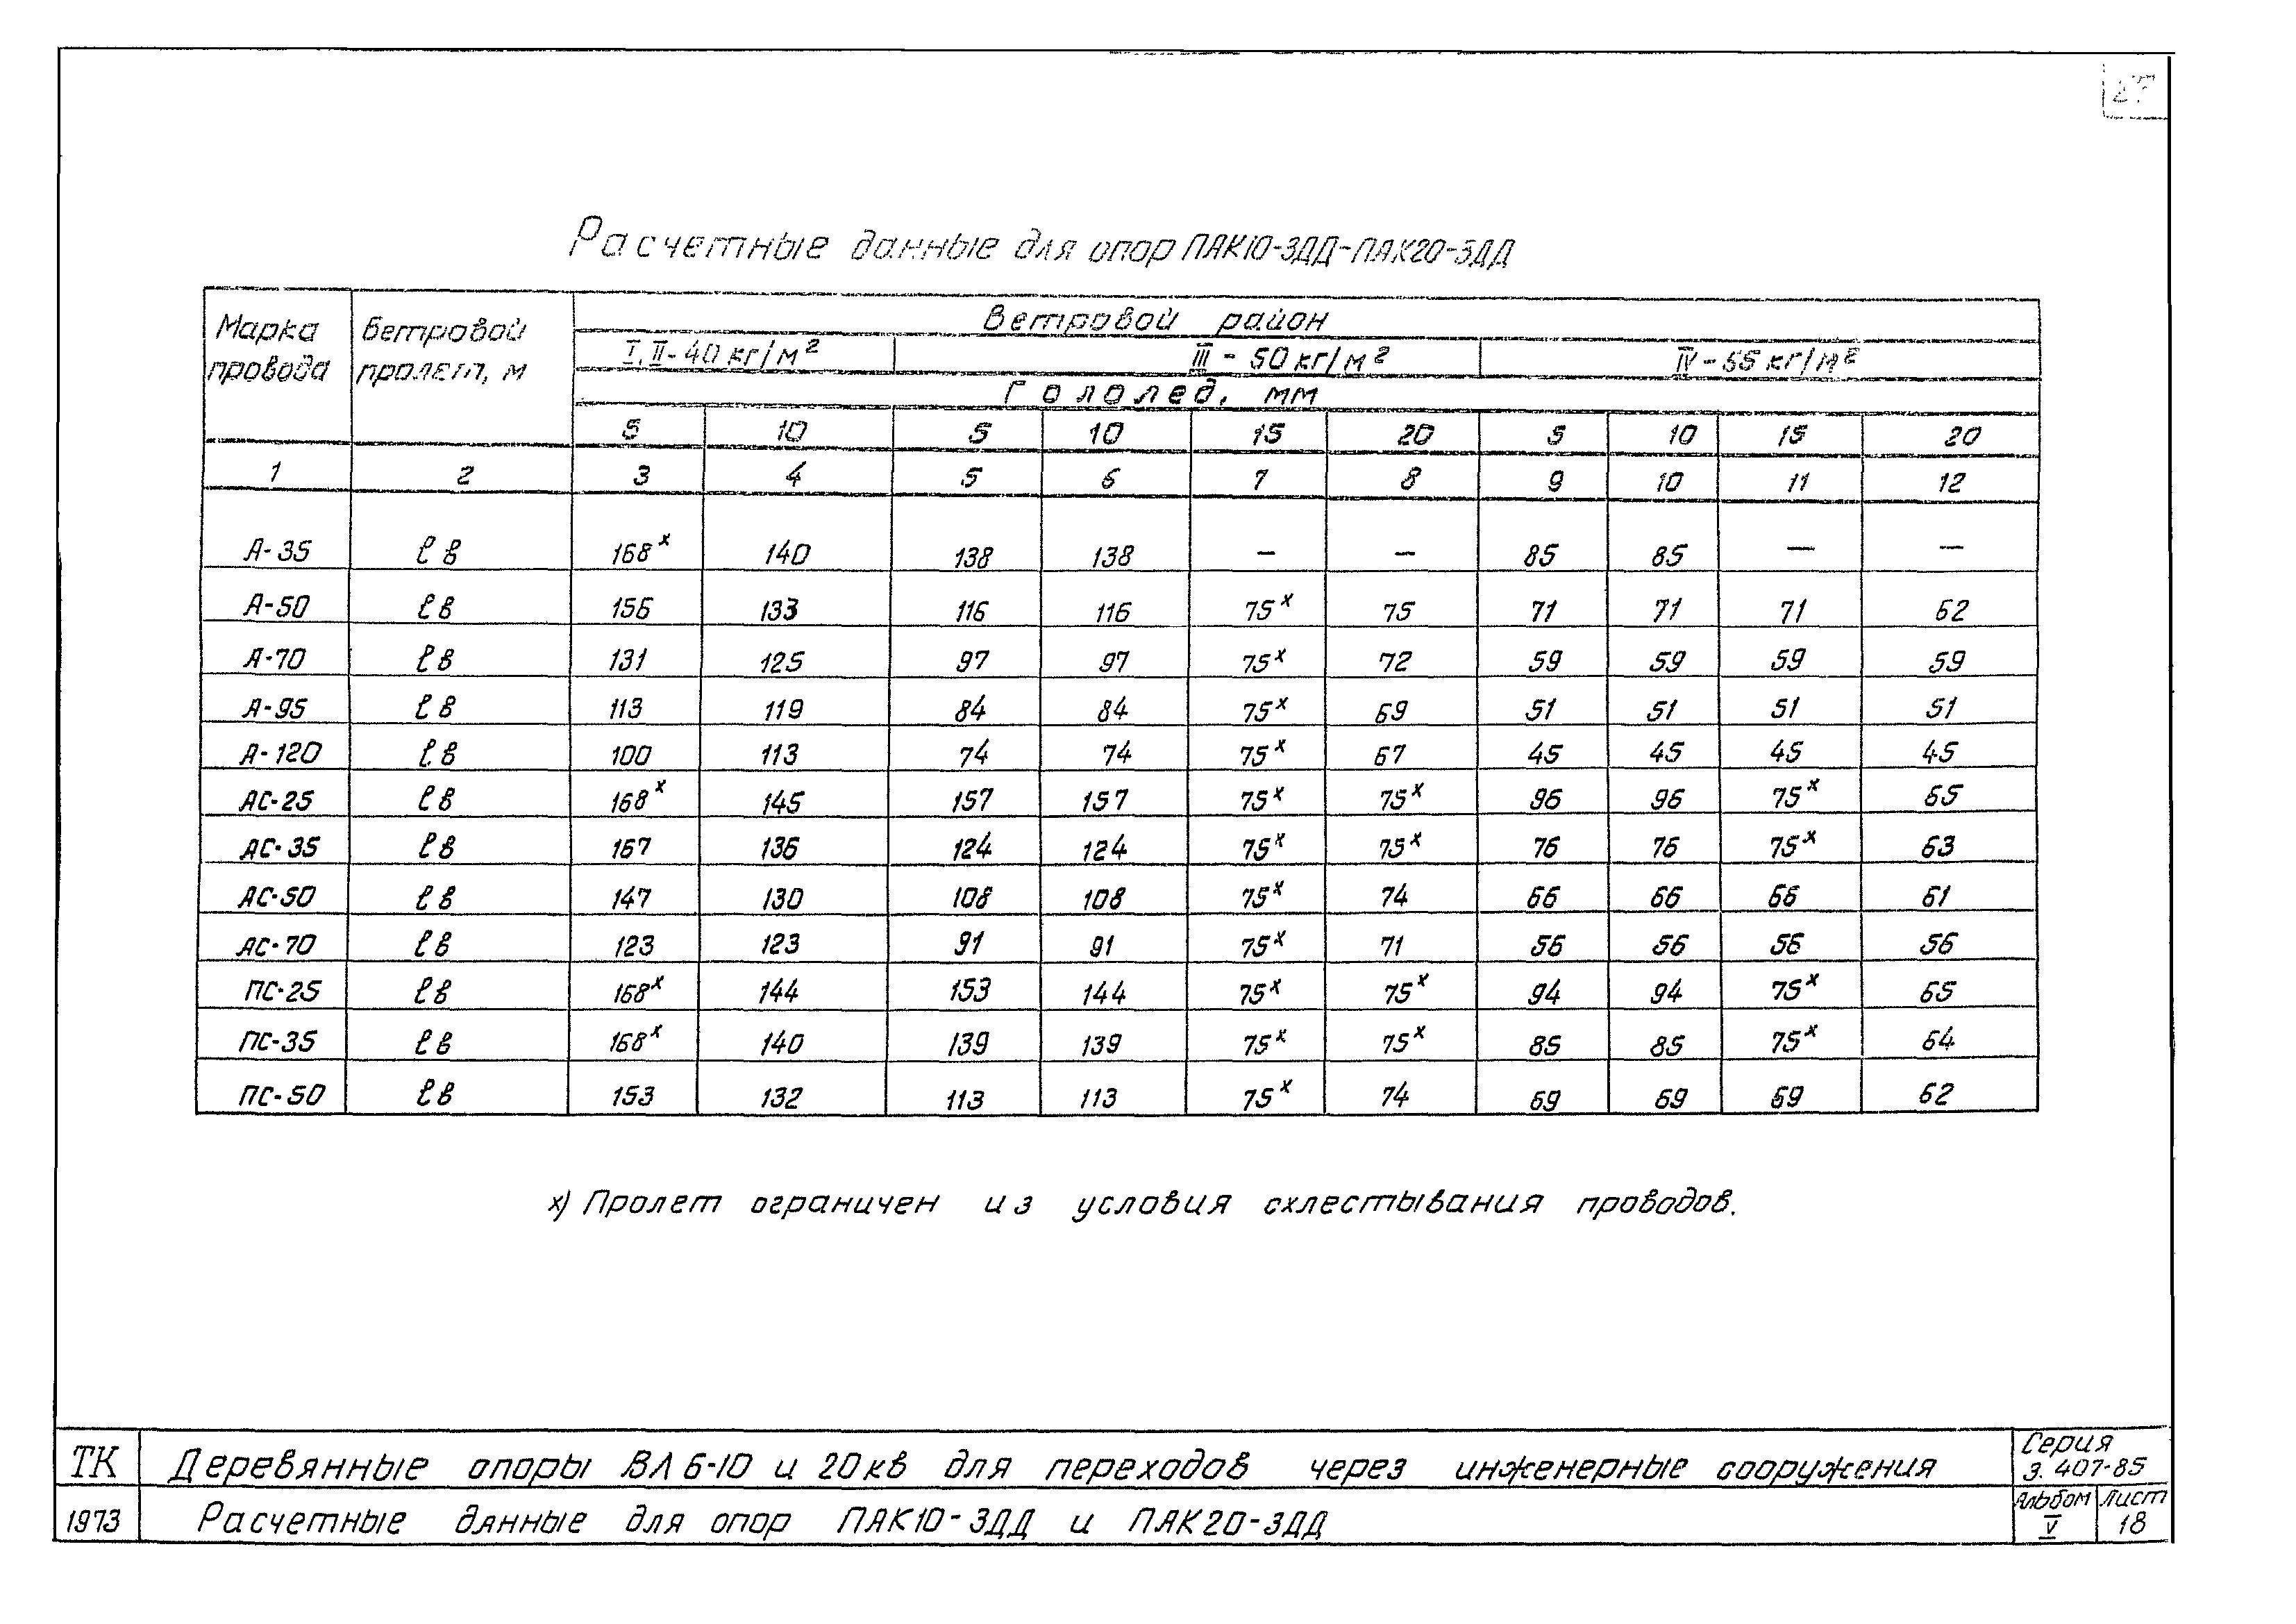 27
Расчетные данные для опор ПАК10-3ДД-ПАК20-3ДД
Марка провода | Ветровой пролет, м | Ветровой район
I, II - 40 кг/м² | III - 50 кг/м² | IV - 55 кг/м²
Гололед, мм
5 | 10 | 5 | 10 | 15 | 20 | 5 | 10 | 15 | 20
1 | 2 | 3 | 4 | 5 | 6 | 7 | 8 | 9 | 10 | 11 | 12
А-35 | ℓв | 168ˣ | 140 | 138 | 138 | — | — | 85 | 85 | — | —
А-50 | ℓв | 156 | 133 | 116 | 116 | 75ˣ | 75 | 71 | 71 | 71 | 62
А-70 | ℓв | 131 | 125 | 97 | 97 | 75ˣ | 72 | 59 | 59 | 59 | 59
А-95 | ℓв | 113 | 119 | 84 | 84 | 75ˣ | 69 | 51 | 51 | 51 | 51
А-120 | ℓв | 100 | 113 | 74 | 74 | 75ˣ | 67 | 45 | 45 | 45 | 45
АС-25 | ℓв | 168ˣ | 145 | 157 | 157 | 75ˣ | 75ˣ | 96 | 96 | 75ˣ | 65
АС-35 | ℓв | 167 | 136 | 124 | 124 | 75ˣ | 75ˣ | 76 | 76 | 75ˣ | 63
АС-50 | ℓв | 147 | 130 | 108 | 108 | 75ˣ | 74 | 66 | 66 | 66 | 61
АС-70 | ℓв | 123 | 123 | 91 | 91 | 75ˣ | 71 | 56 | 56 | 56 | 56
ПС-25 | ℓв | 168ˣ | 144 | 153 | 144 | 75ˣ | 75ˣ | 94 | 94 | 75ˣ | 65
ПС-35 | ℓв | 168ˣ | 140 | 139 | 139 | 75ˣ | 75ˣ | 85 | 85 | 75ˣ | 64
ПС-50 | ℓв | 153 | 132 | 113 | 113 | 75ˣ | 74 | 69 | 69 | 69 | 62
х) Пролет ограничен из условия схлестывания проводов.
ТК | Деревянные опоры ВЛ 6-10 и 20 кв для переходов через инженерные сооружения | Серия 3.407-85
1973 | Расчетные данные для опор ПАК10-3ДД и ПАК20-3ДД | Альбом V | Лист 18